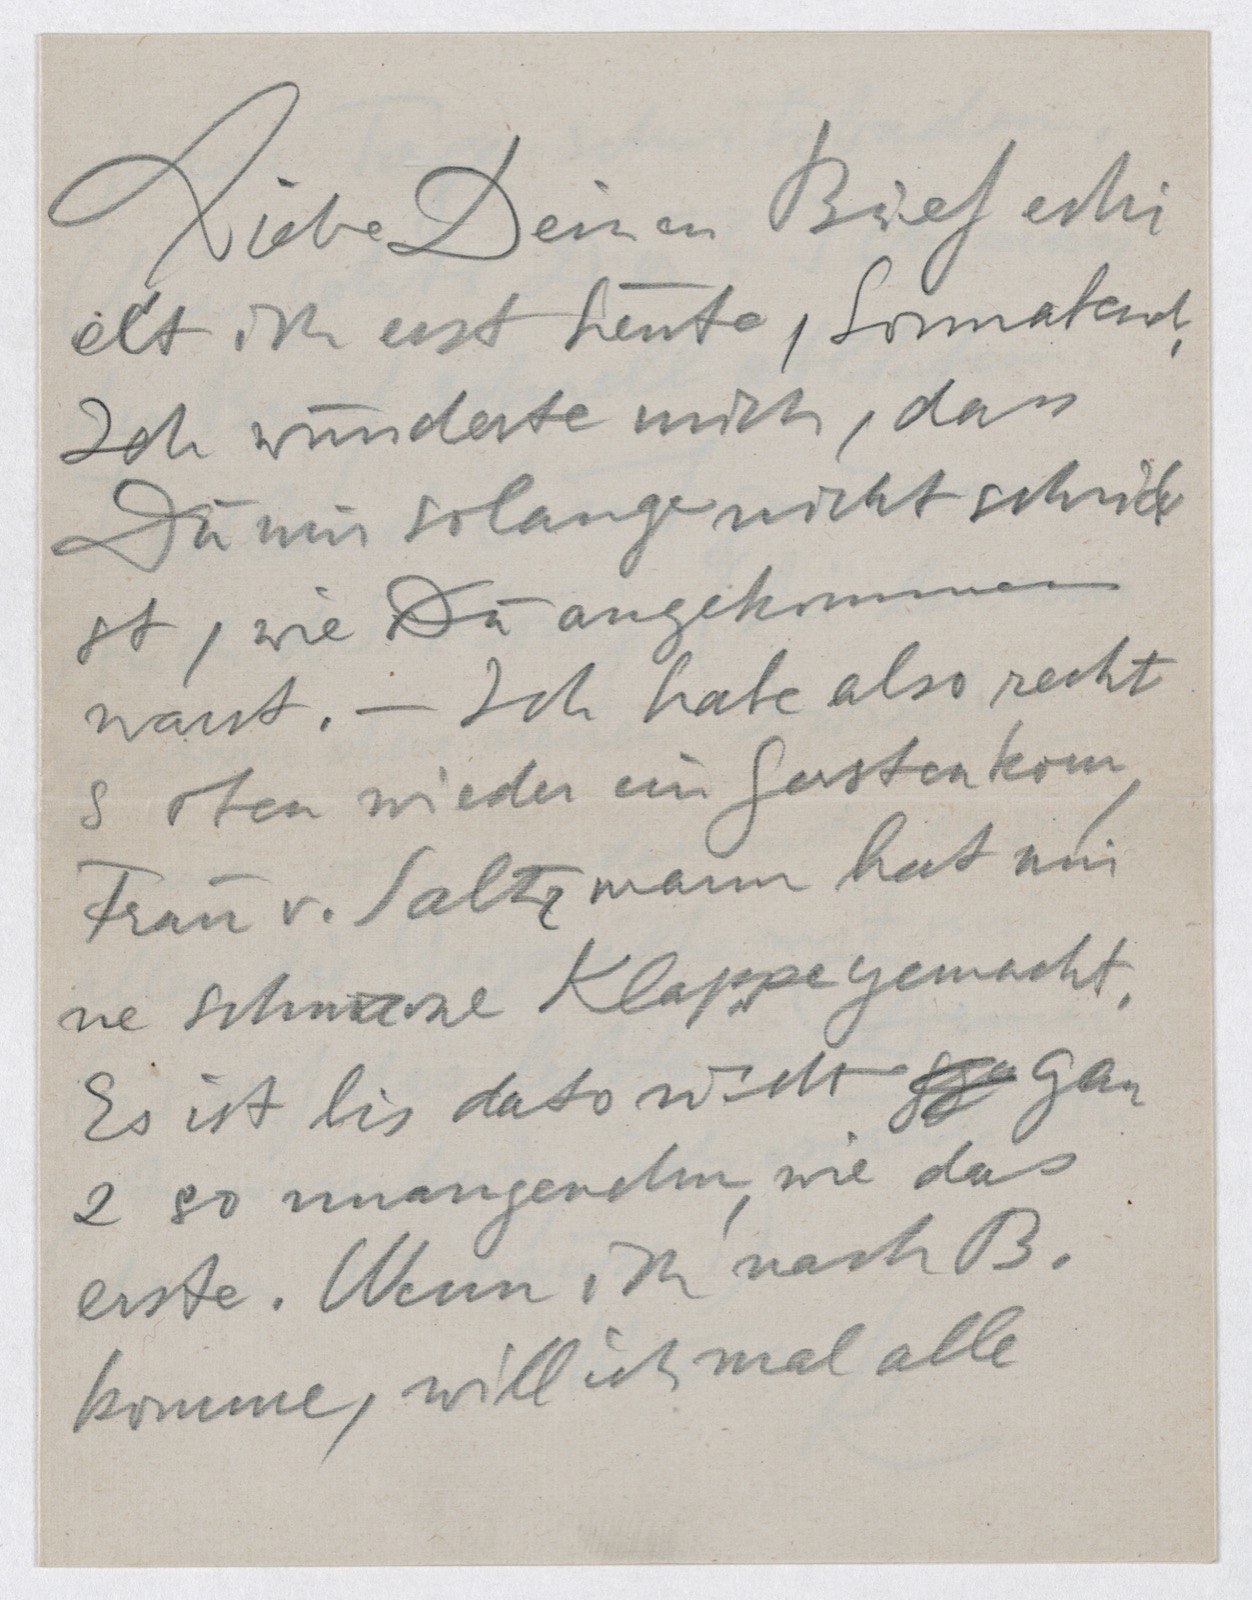 Liebe Deinen Brief erhi
elt ich erst heute, Sonnabend,
Ich wunderte mich, dass
Du mir solange nicht schrieb
st, wie Du angekommen
warst. — Ich habe also recht
s oben wieder ein Gerstenkorn,
Frau v. Saltzmann hat mir
ne schwarze Klappe gemacht.
Es ist bis dato nicht gan
z so unangenehm, wie das
erste. Wenn ich nach B.
komme, will ich mal alle